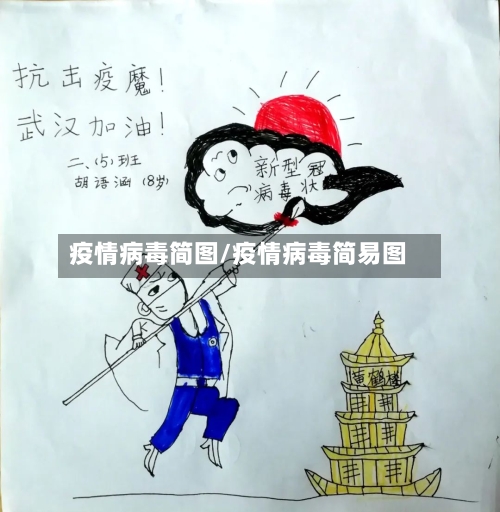 抗击疫魔!
武汉加油!
二、(5)班
胡语涵(8岁)
新型冠
病毒状
疫情病毒简图/疫情病毒简易图
黄鹤楼